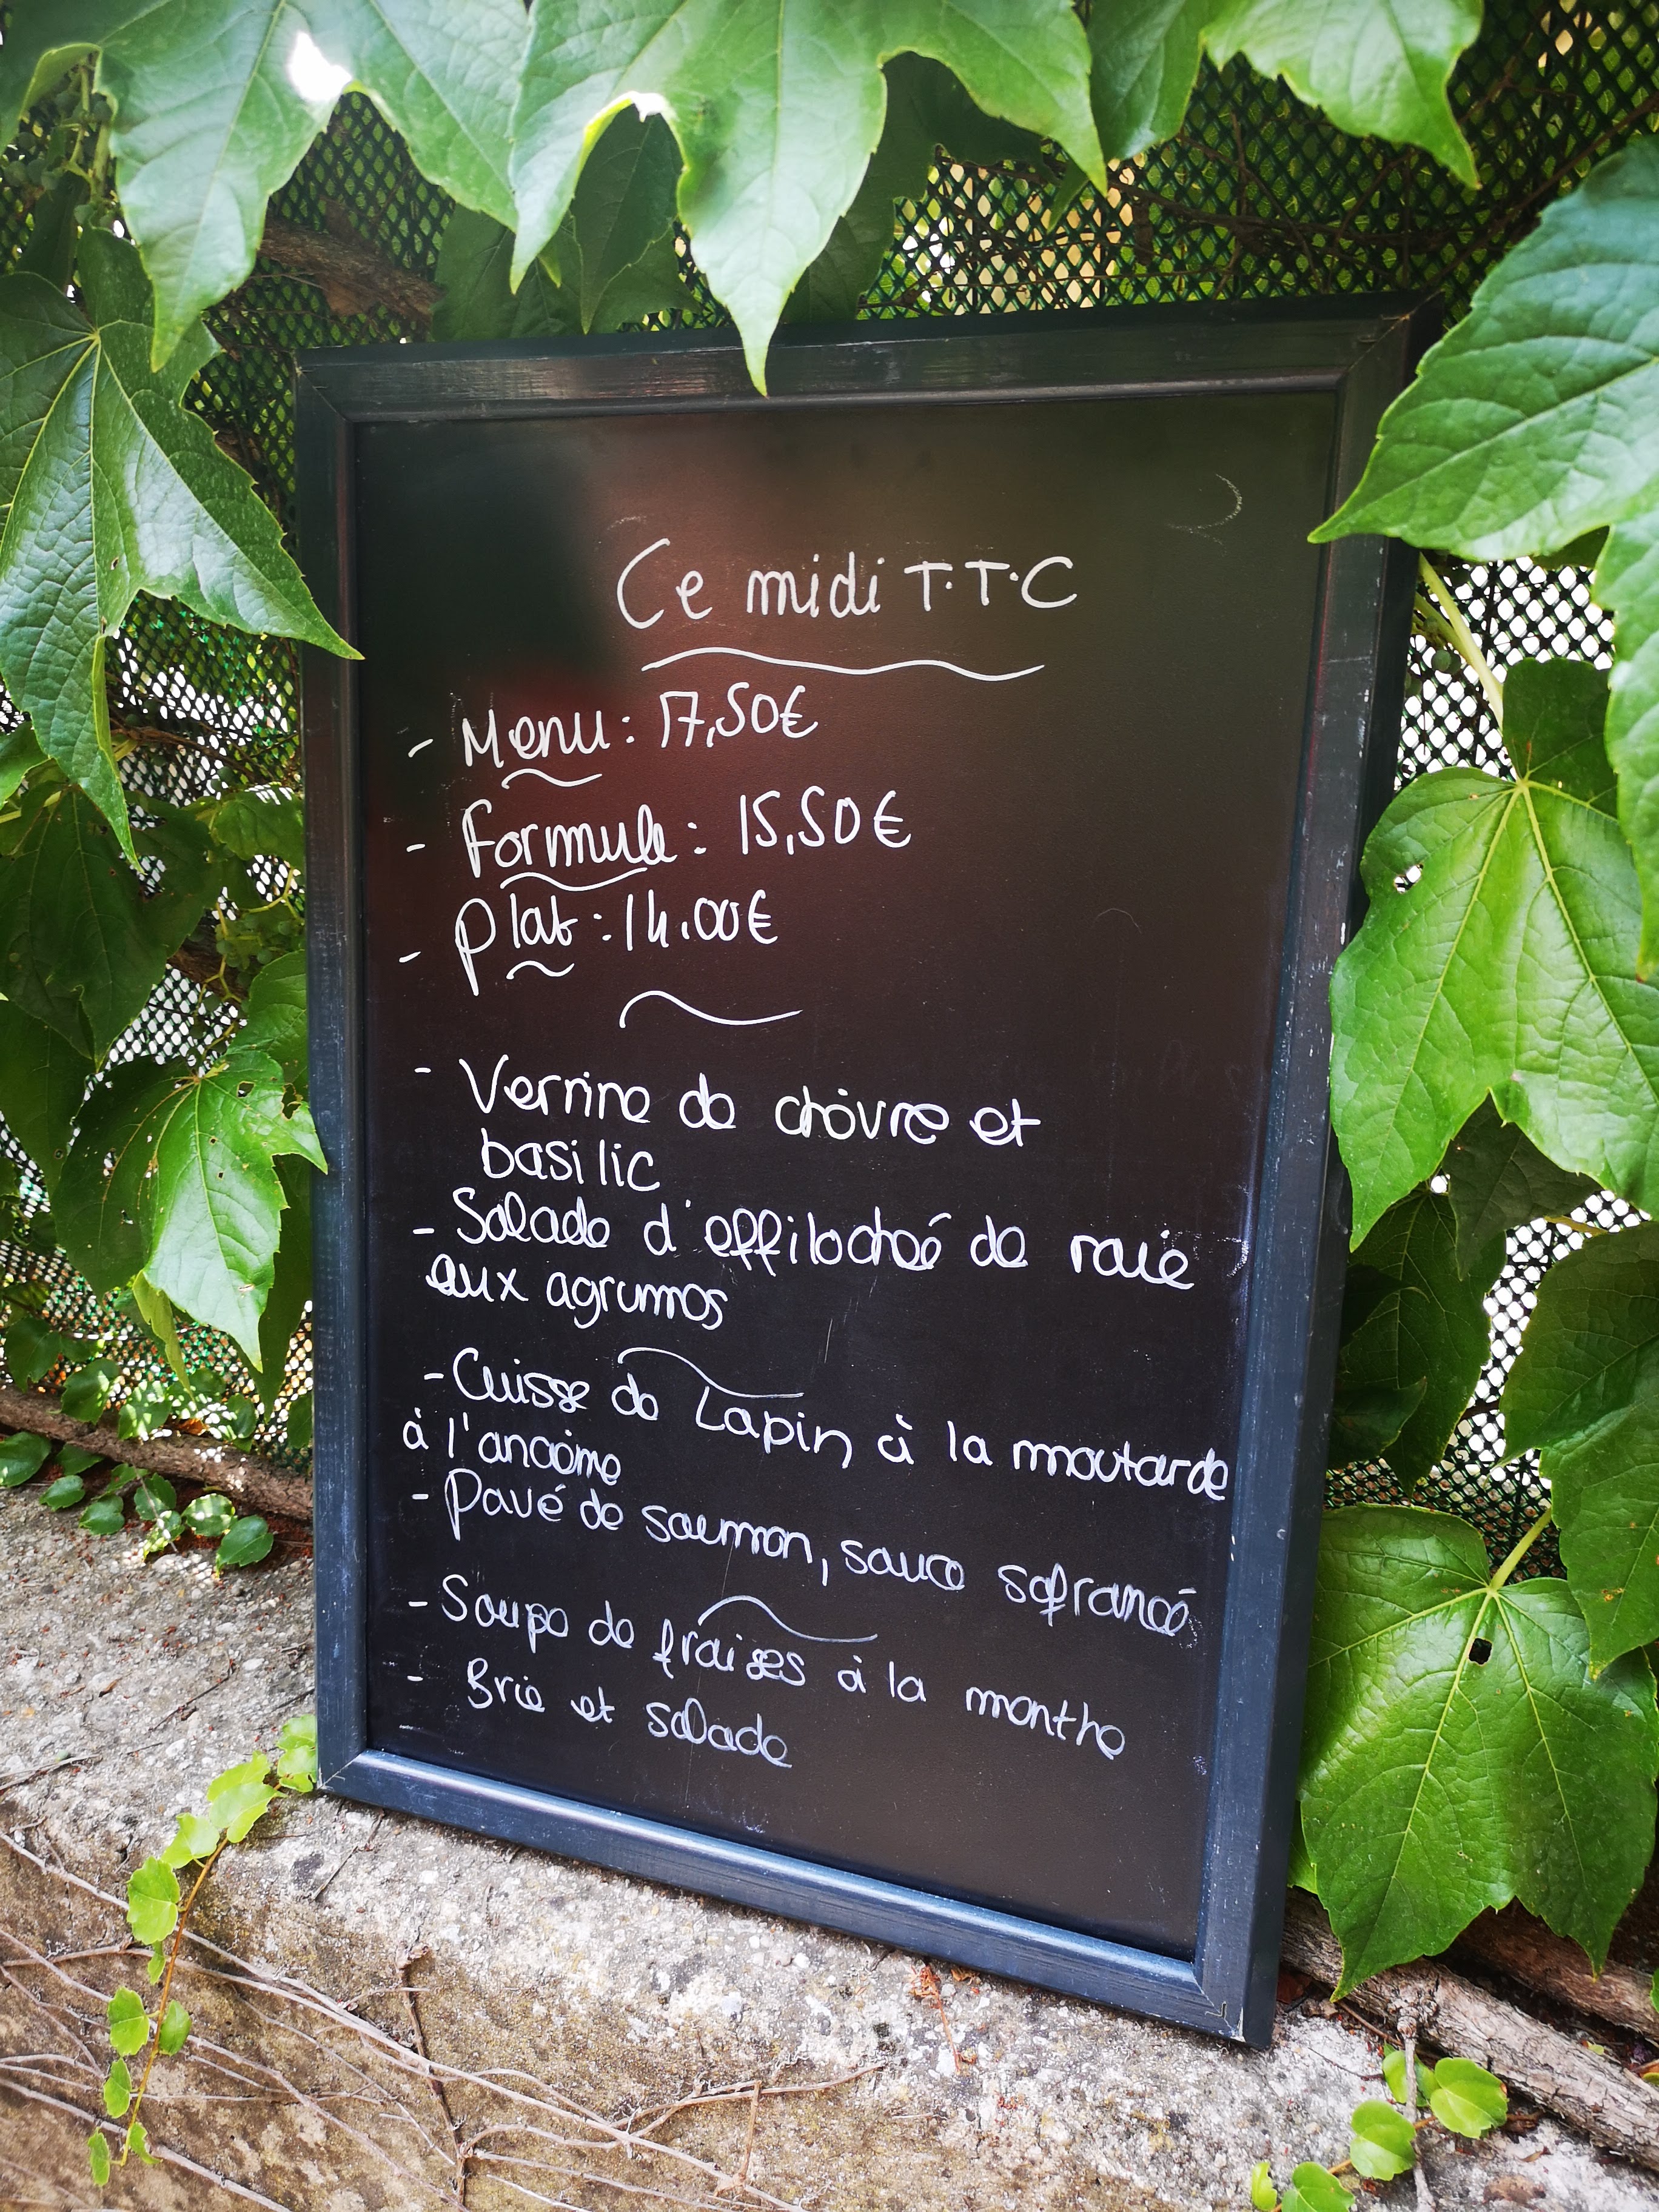 Ce midi T.T.C
- Menu : 17,50€
- Formule : 15,50€
- Plat : 14.00€
- Verrine de chèvre et
basilic
- Salade d'effilochée de raie
aux agrumes
- Cuisse de Lapin à la moutarde
à l'ancienne
- Pavé de saumon, sauce safrané
- Soupe de fraises à la menthe
- Brie et salade